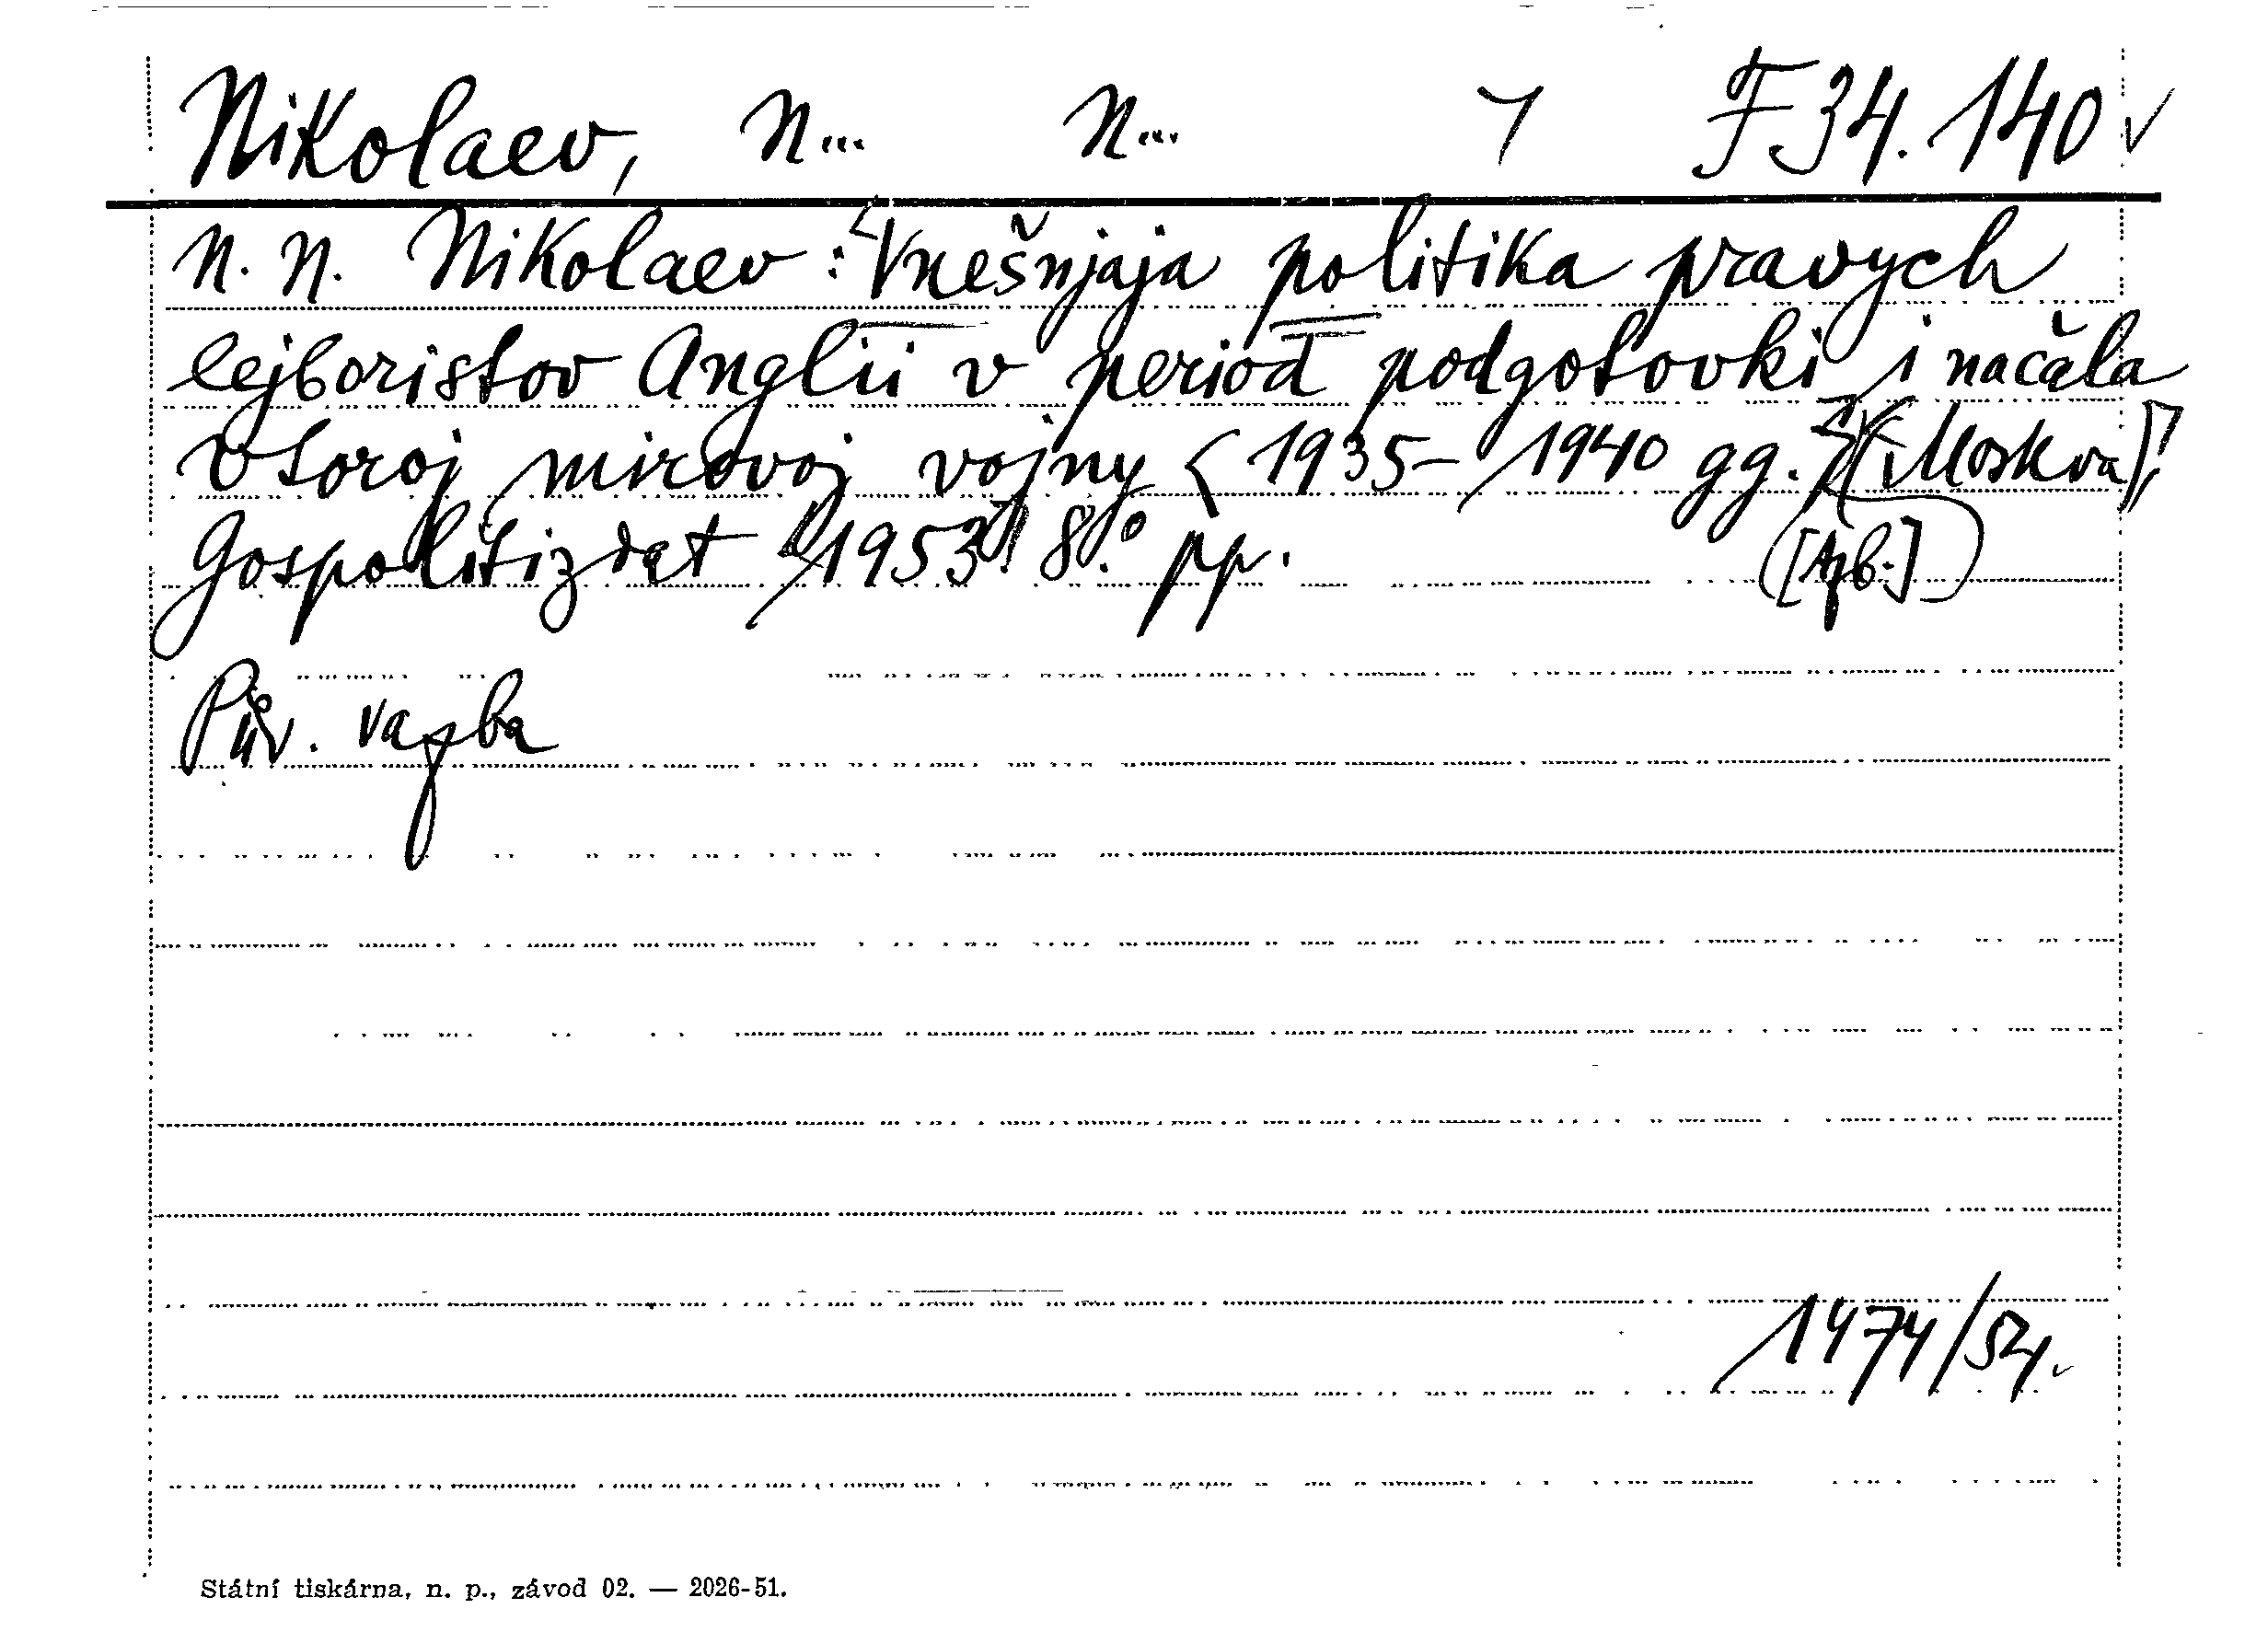 Nikolaev, N... N... F 34.140
N. N. Nikolaev: Vnešnjaja politika pravych
lejboristov Anglii v period podgotovki i načala
vtoroj mirovoj vojny <1935-1940 gg.> (Moskva),
Gospolitizdat 1953. 8°. pp.
Pův. vazba
1474/54.
Státní tiskárna, n. p., závod 02. — 2026-51.